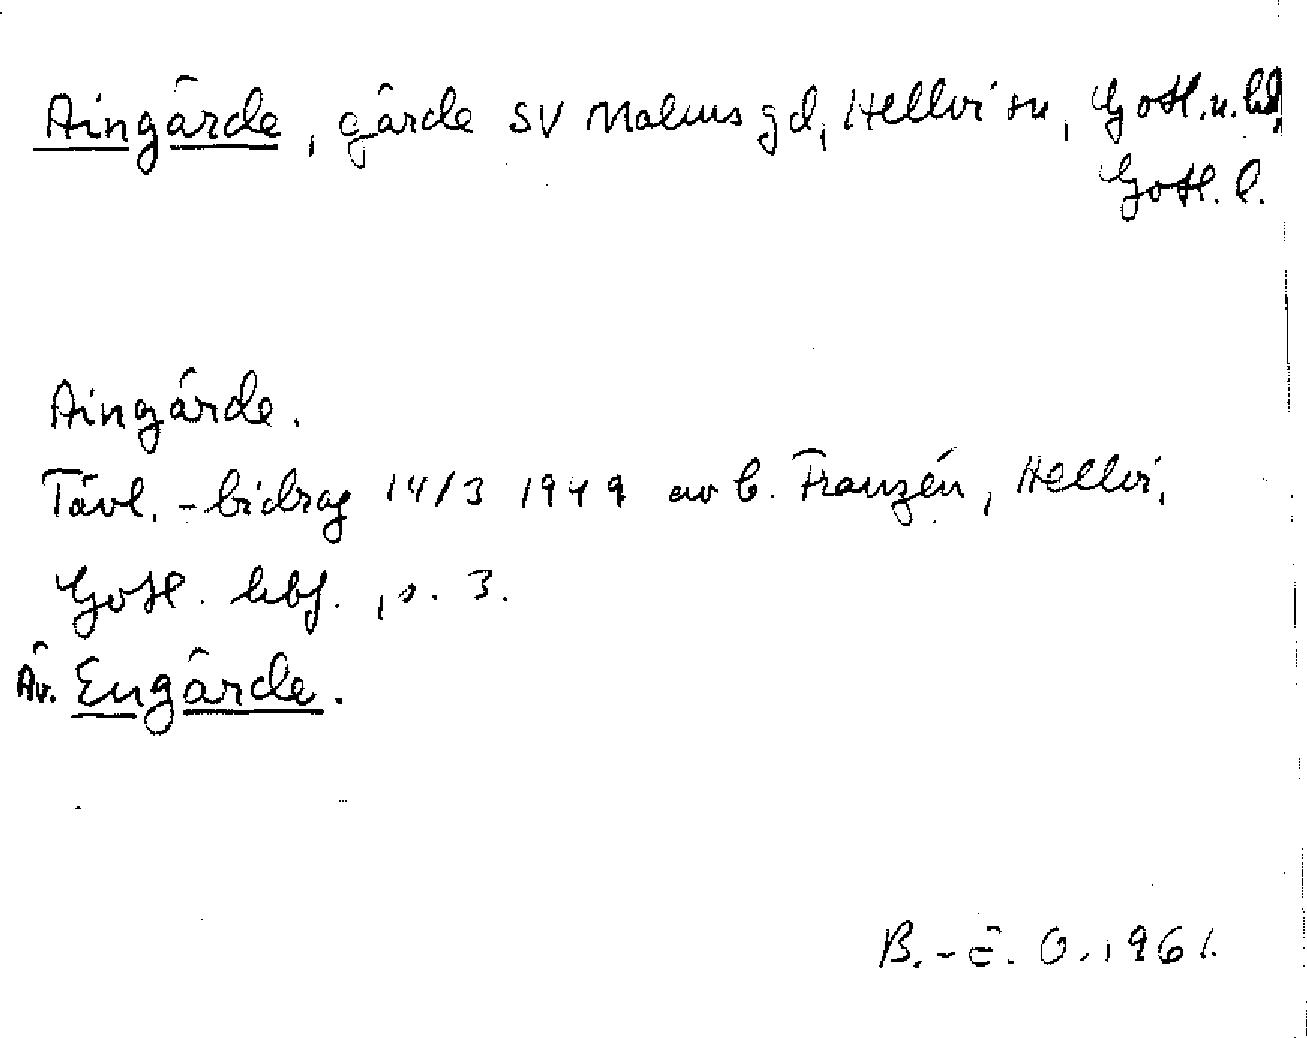 Aingärde, gärde SV Malms gd, Hellvi sn, Gotl. n. hd,
Gotl. l.
Aingärde.
Tävl.-bidrag 14/3 1949 av b. Franzén, Hellvi,
Gotl. hbf., s. 3.
Äv. Engärde.
B.-Å. O. 1961.